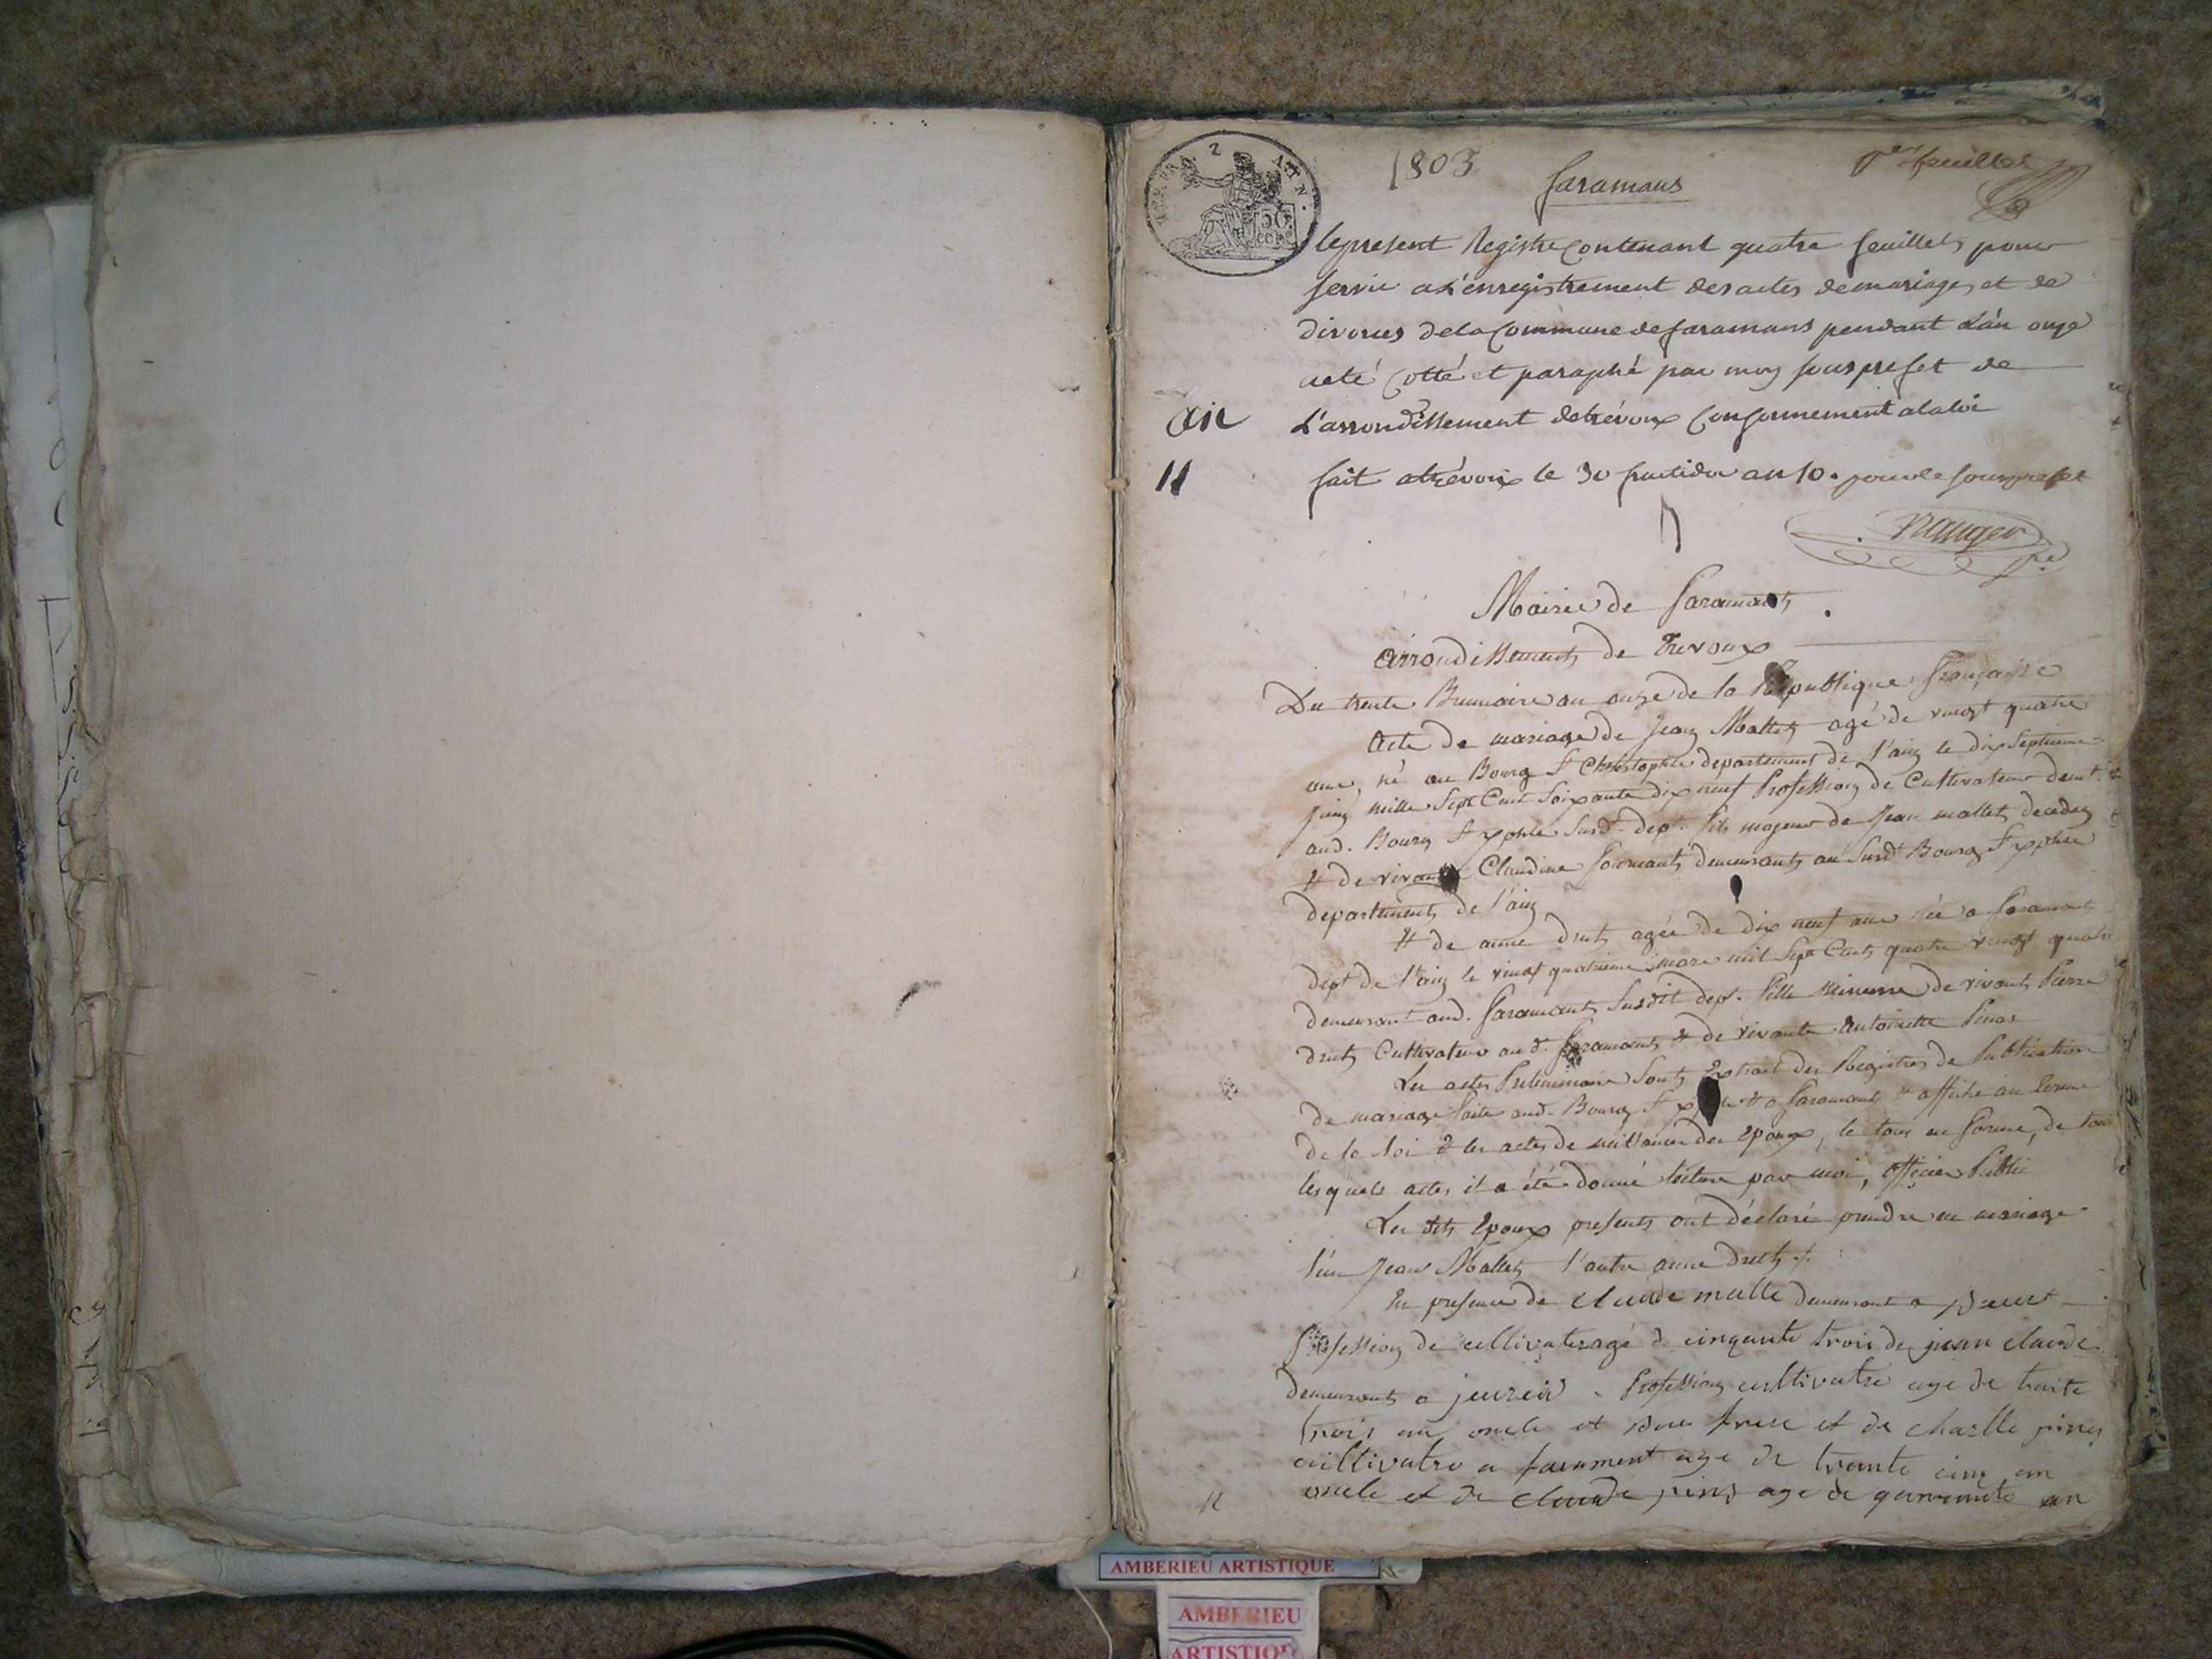 1803
faramans
1er feuillet
50
le present Registre Contenant quatre feuillets pour
servir a L'enregistrement des actes de mariages et de
divorces de la Commune de faramans pendant L'an onze
a eté Cotté et paraphé par moy sous prefet de
an
L'arrondissement de trévoux Conformement a la loi
11
fait a trévoux le 30 fructidor an 10. pour le sous prefet
Mairie de faramants
arrondissements de Trevoux
Du trente Brumaire an onze de la République française
Acte de mariage de Jean Mallet agé de vingt quatre
ans, né au Bourg St Christophle departement de l'ain le dix Septieme
juin mille Sept Cent Soixante dix neuf Profession de Cultivateur demt
aud. Bourg St xphle susd. dept. fils majeur de Jean mallet decedez
& de vivante Claudine demeurants au Susdt Bourg St xphle
departements de l'ain
& de anne druts agée de dix neuf ans née a faramants
dept de l'ain le vingt quatrieme mars mil Sept Cents quatre vingt quatre
demeurant aud. faramants Susdit dept. fille mineure de vivants Pierre
druts Cultivateur aud. faramants & de vivante antoinette Pinos
Les actes Preliminaire sonts Extrait des Registres de Publication
de mariage faite aud. Bourg St & a faramants & affiché au terme
de la loi & les actes de naissance des Epoux, le tous en forme, de tous
lesquels actes il a été donné lecture par moi, officier Public
Les dits Epoux presents ont déclaré prendre en mariage
l'un Jean Mallet l'autre anne druts
En presence de claude malle demeurant a
Profession de cultivater agé de cinquante trois de jean claude
demeurants a Profession cultivatre age de trante
trois an oncle et frere et de charlle pinos
cultivatre a farament age de trante cinq an
oncle et de claude pinos age de quarante an
AMBERIEU ARTISTIQUE
AMBERIEU
ARTISTIQUE